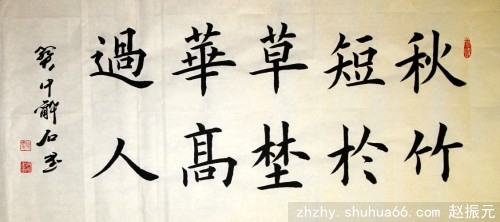 秋竹
短於
草埜
華髙
過人
zhzhy.shuhua66.com 赵振元